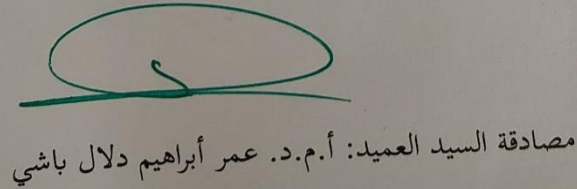 مصادقة السيد العميد: أ.م.د. عمر أبراهيم دلال باشي